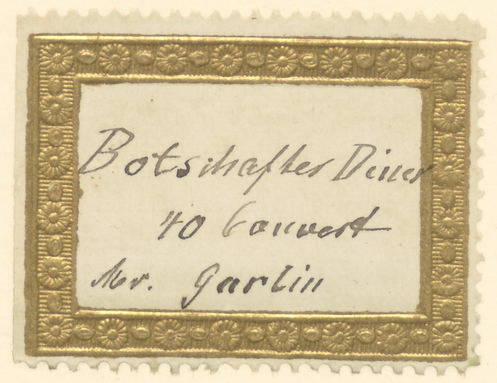 Botschafter Diner
40 Couvert
Mr. Garlin